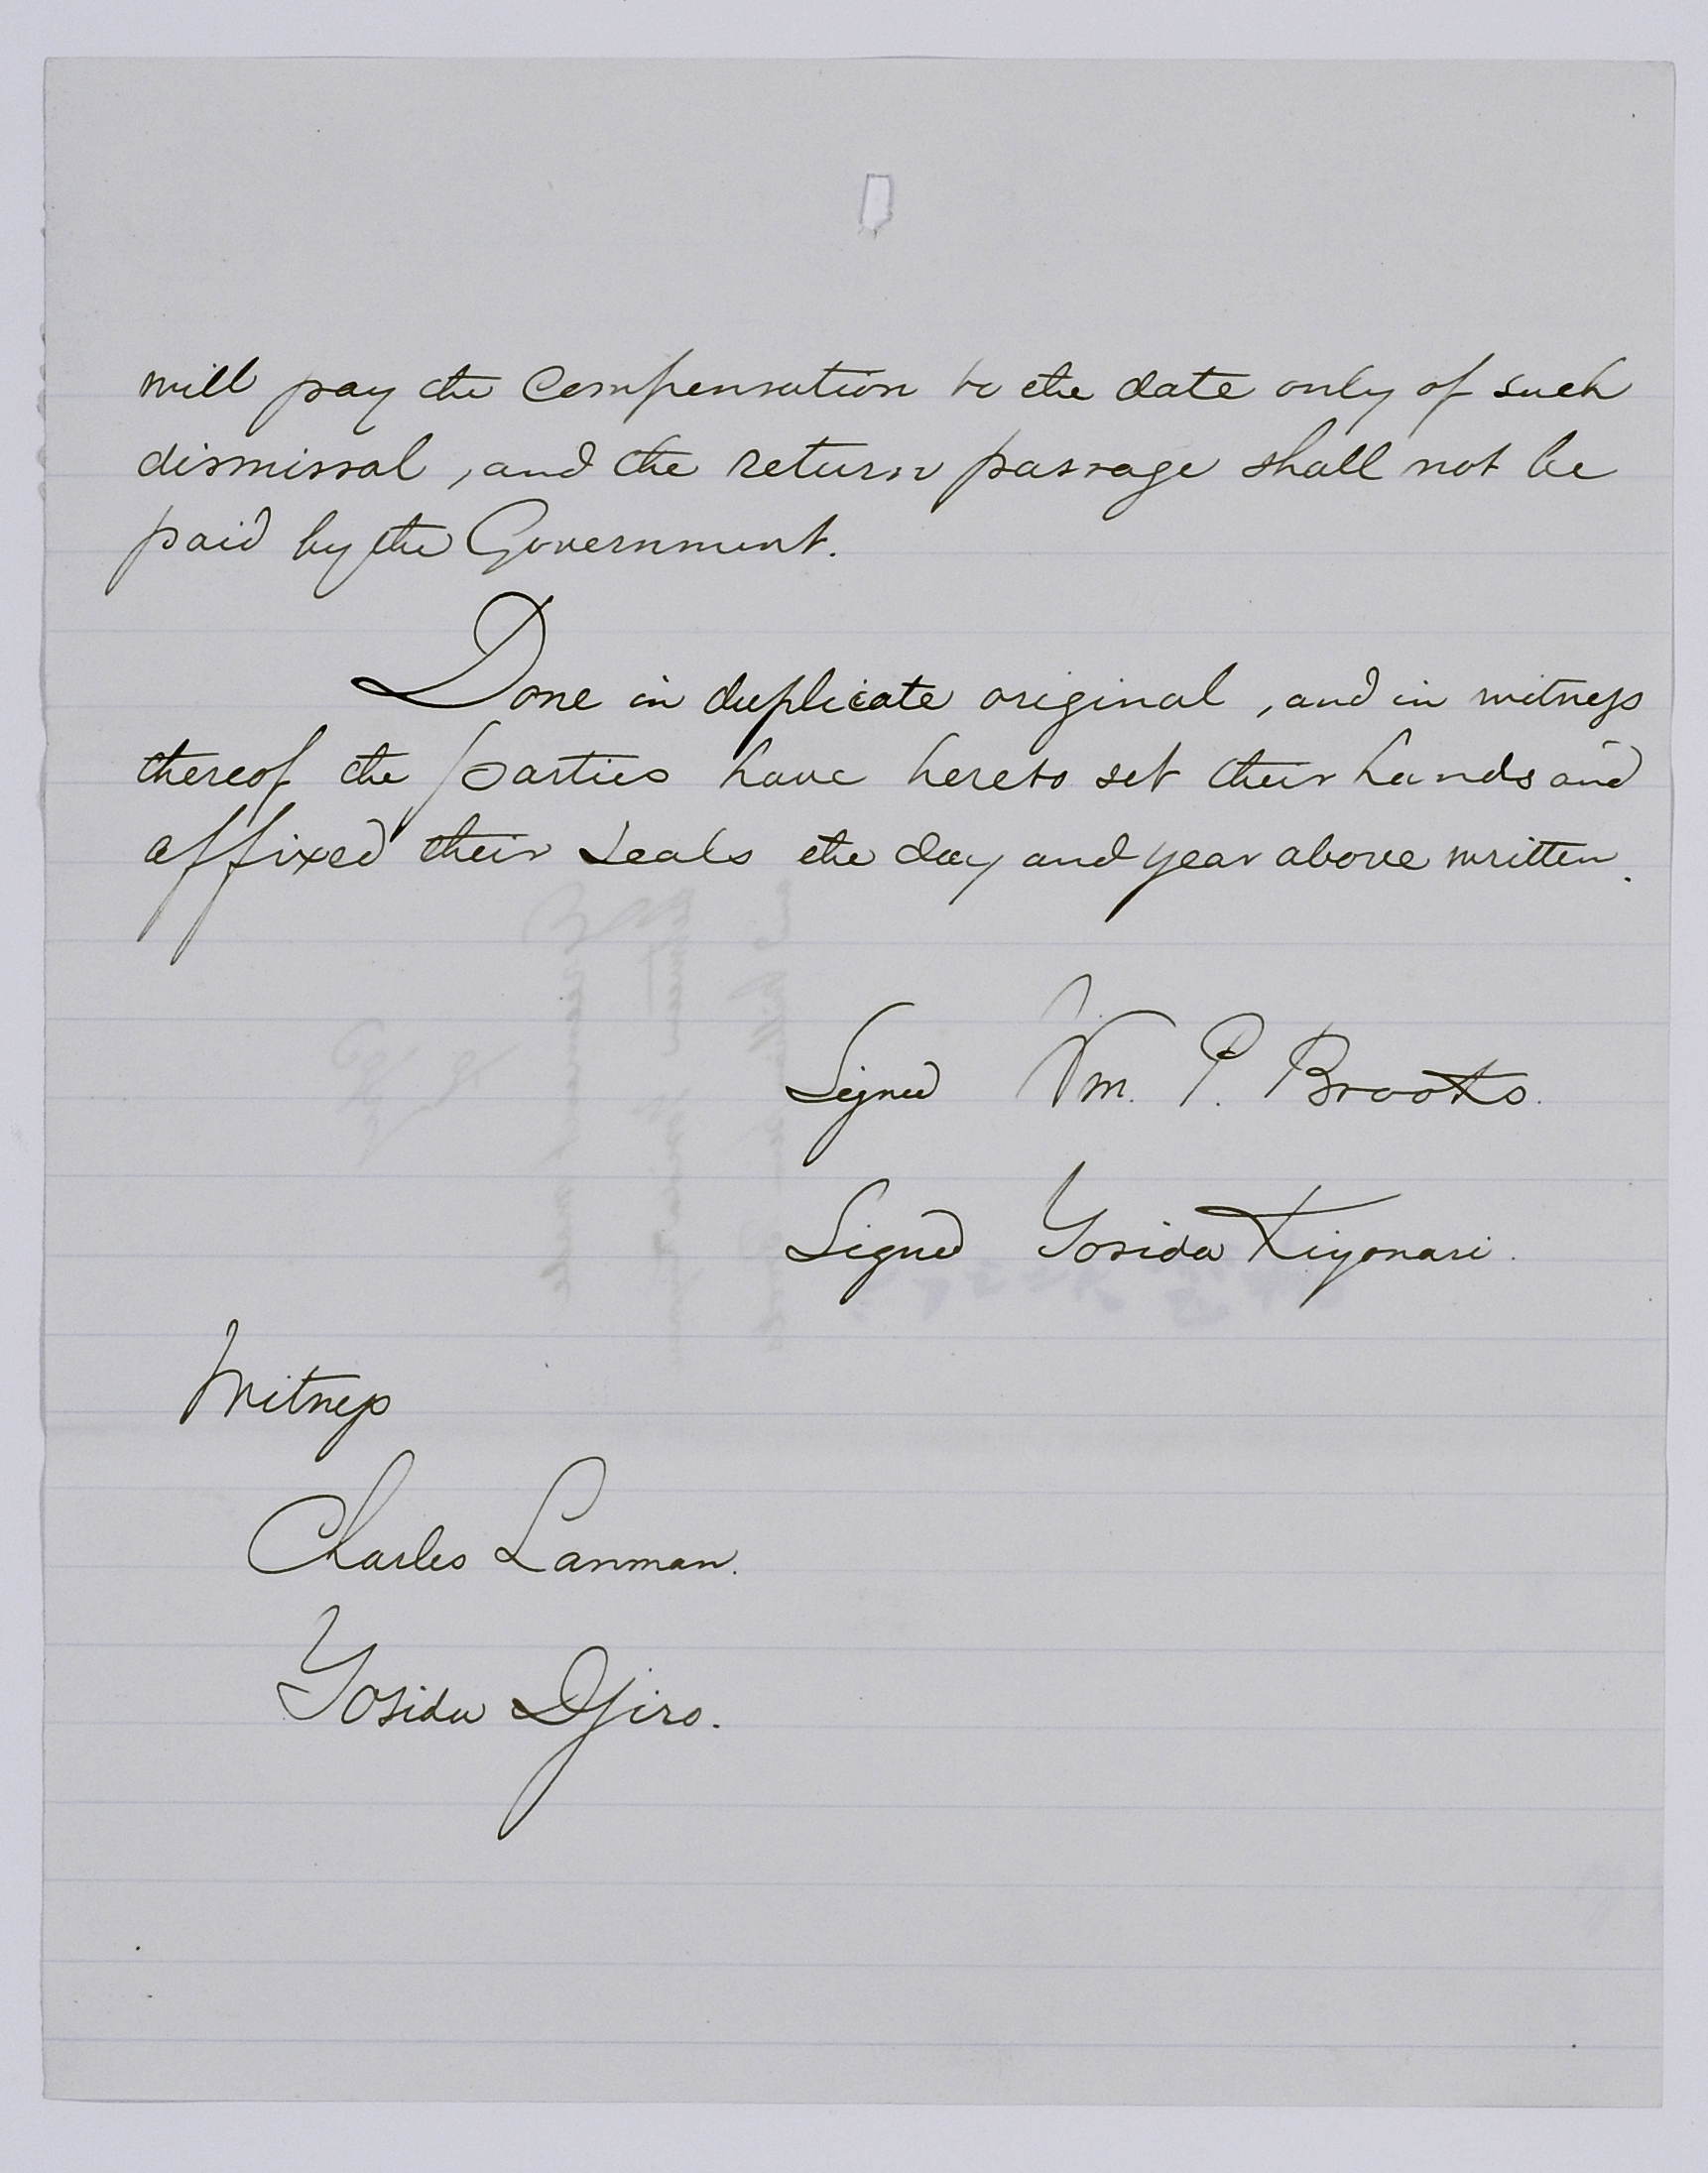 will pay the Compensation to the date only of such
dismissal, and the return passage shall not be
paid by the Government.
Done in duplicate original, and in witness
thereof the parties have hereto set their hands and
affixed their Seals the day and year above written.
Signed Wm. P. Brooks.
Signed Yosida Kiyonari.
Witness
Charles Lanman.
Yosida Djiro.